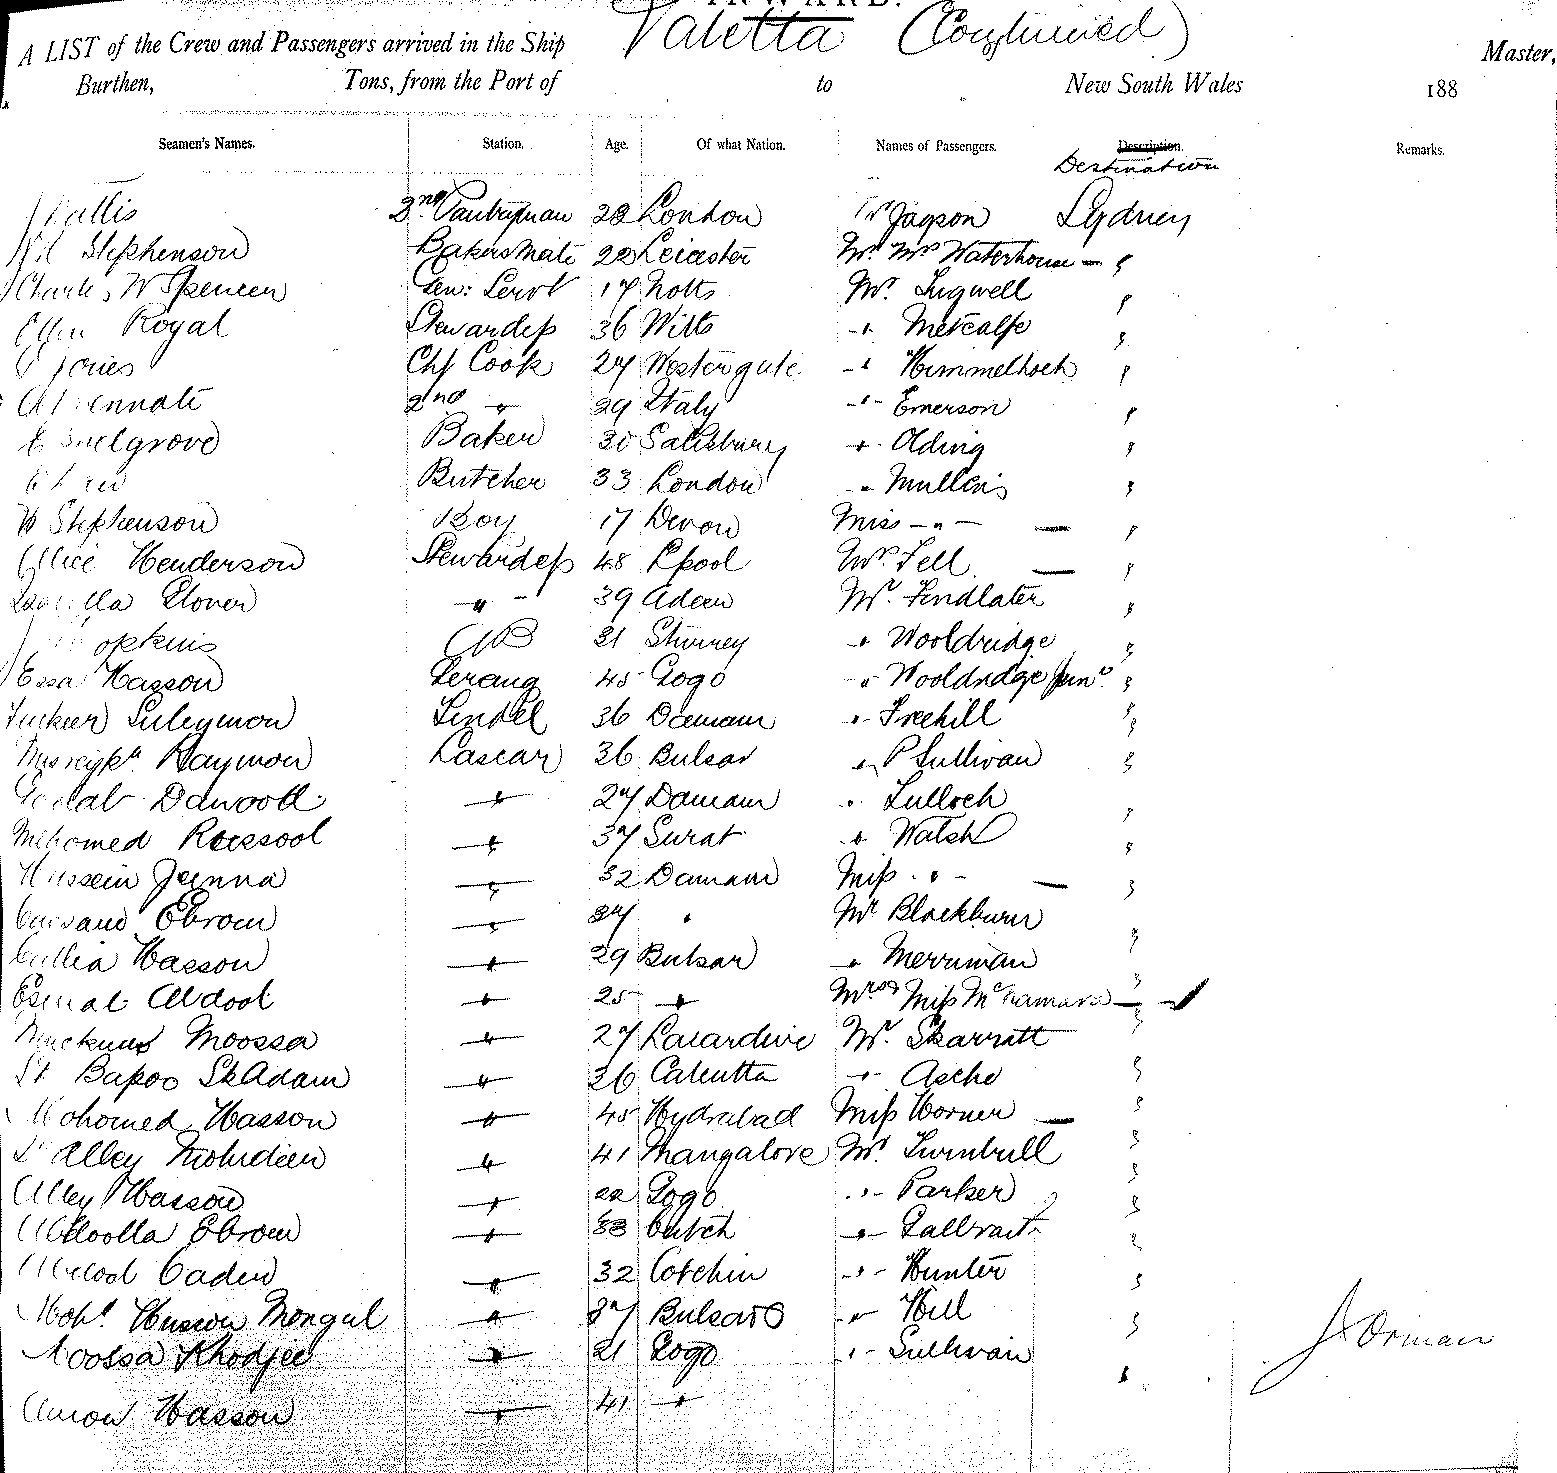 INWARD.
Valetta (Continued)
A LIST of the Crew and Passengers arrived in the Ship Master,
Burthen, Tons, from the Port of to New South Wales 188
Seamen's Names. Station. Age. Of what Nation. Names of Passengers. Description. Remarks.
Destination
2nd Pantryman 28 London Mr Jagson Sydney
Stephenson Bakers Mate 22 Leicester Mr Mrs Waterhouse — "
Charles W Spencer Gen: Servt 17 Notts Mr. Tugwell "
Ellen Royal Stewardess 36 Wilts " Metcalfe "
Jones Chf Cook 27 Westergate " Himmelhoch "
2nd " 29 Italy " Emerson "
Snelgrove Baker 30 Salisbury " Olding "
Butcher 33 London " Mullens "
W Stephenson Boy 17 Devon Miss — " — — "
Alice Henderson Stewardess 48 Lpool Mrs. Fell — "
Isabella Glover " 39 Aden Mr. Findlater "
Hopkins AB 21 Sturrey " Wooldridge "
Essa Hasson Serang 45 Gogo " Wooldridge Junr. "
Suleymon Tindel 36 Damam " Freehill "
Raymon Lascar 36 Bulsar " P Sullivan "
Dawood " 27 Damam " Tulloch "
Mehomed Roessool " 37 Surat " Walsh "
Hussein Jeenna " 32 Damam Miss " — "
Ebrom " 37 " Mr Blackburn "
Hasson " 29 Bulsar " Merriman "
Esmal Abdool " 25 " Mrs & Miss McNamara — "
Moossa " 27 Lacardive Mr. Skarratt "
Bapoo SkAdam " 36 Calcutta " Asche "
Mohomed Hasson " 45 Hydrabad Miss Horner — "
Alley Mohideen " 41 Mangalore Mr. Turnbull "
Alley Hasson " 22 Gogo " Parker "
Abdoolla Ebrom " 33 Cutch " Galbrait "
Abdool Cader " 32 Cotchin " Hunter "
Mohd. Husson Mongul " 37 Bulsar " Hill "
Moossa Khodjee " 21 Gogo " Sullivan
J Orman
Amon Hasson " 41 "